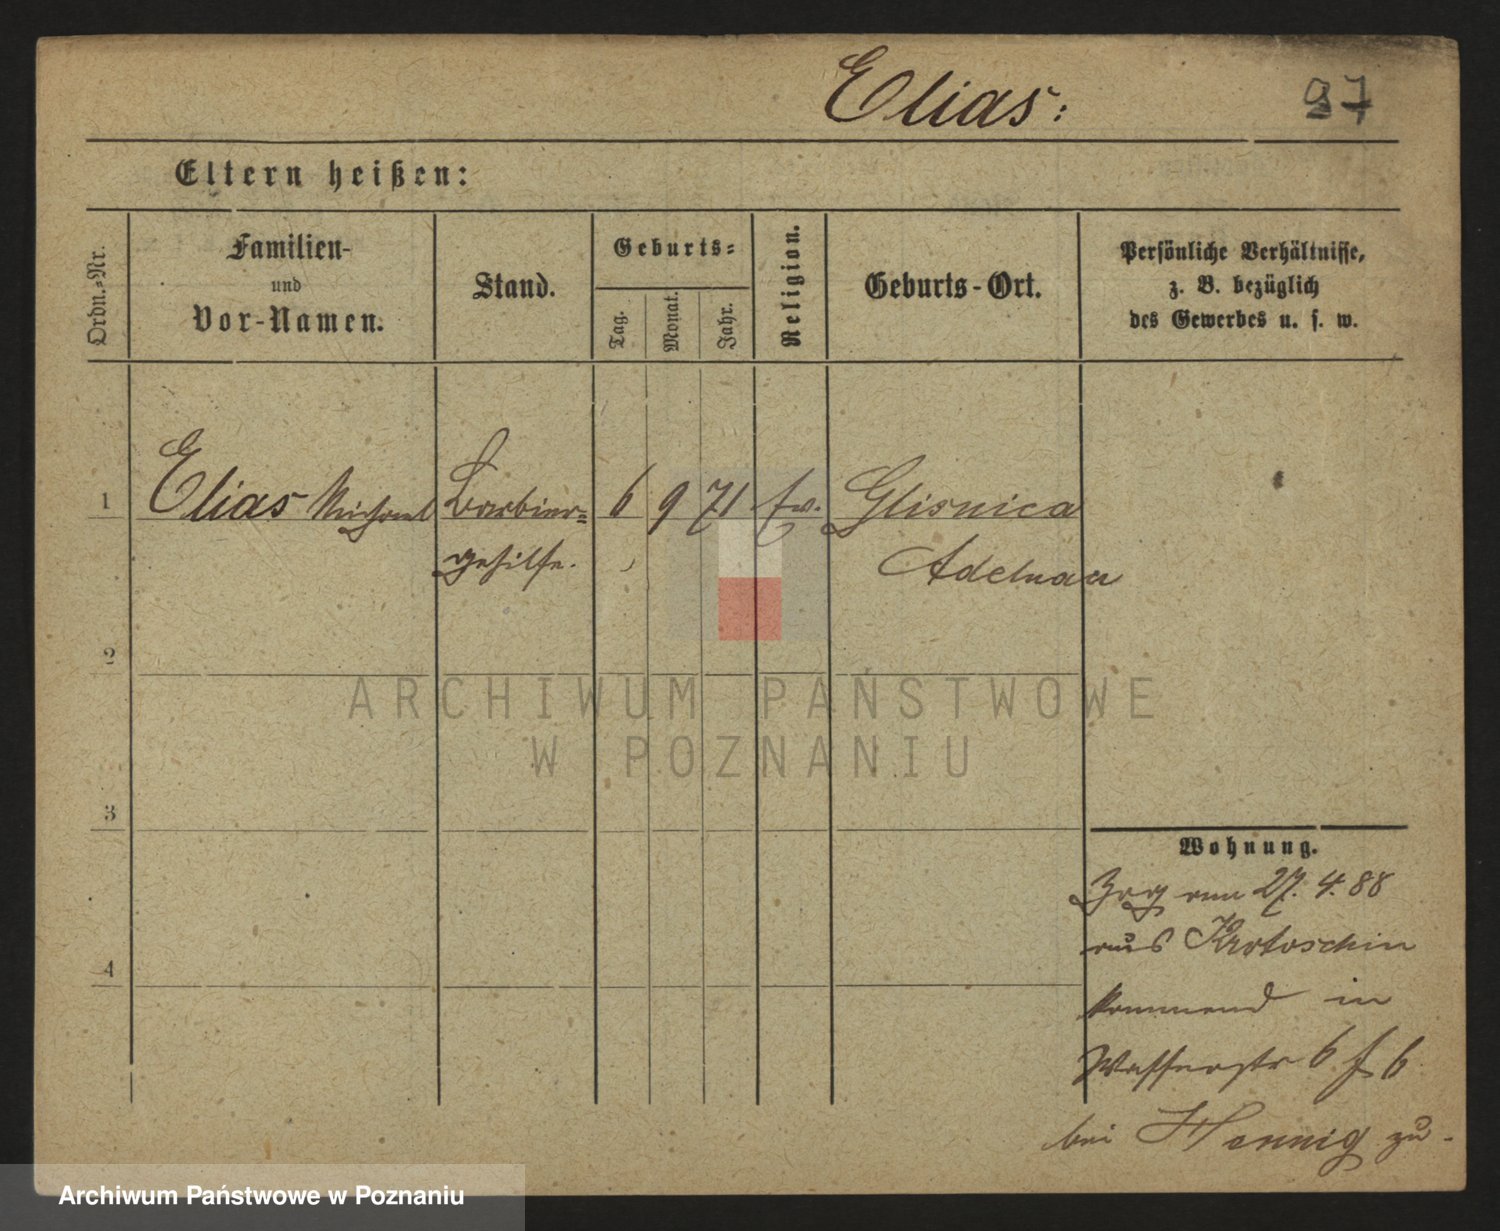 Elias:
97
Eltern heißen:
Ordn.=Nr.
Familien-
und
Vor-Namen.
Stand.
Geburts=
Tag.
Monat.
Jahr.
Religion.
Geburts-Ort.
Persönliche Verhältnisse,
z. B. bezüglich
des Gewerbes u. s. w.
1 Elias Michael Barbier= 6 9 71 Glisnica
gehilfe. Adelnau
2
3
4
ARCHIWUM PAŃSTWOWE
W POZNANIU
Wohnung.
Zog am 27. 4. 88
aus Krotoschin
kommend in
Wasserstr 6 b
bei Hennig zu.
Archiwum Państwowe w Poznaniu